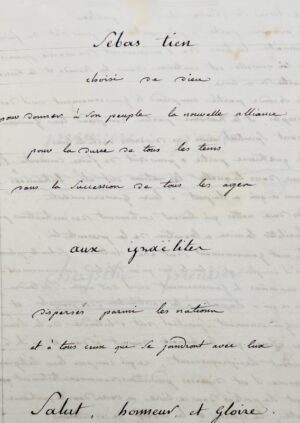 Sebas tien
choisi de dieu
pour donner à son peuple la nouvelle alliance
pour la duree de tous les tems
dans la succession de tous les ages
aux ysraëlites
dispersés parmi les nations
et à tous ceux que se joindront avec eux
Salut, honneur et Gloire.